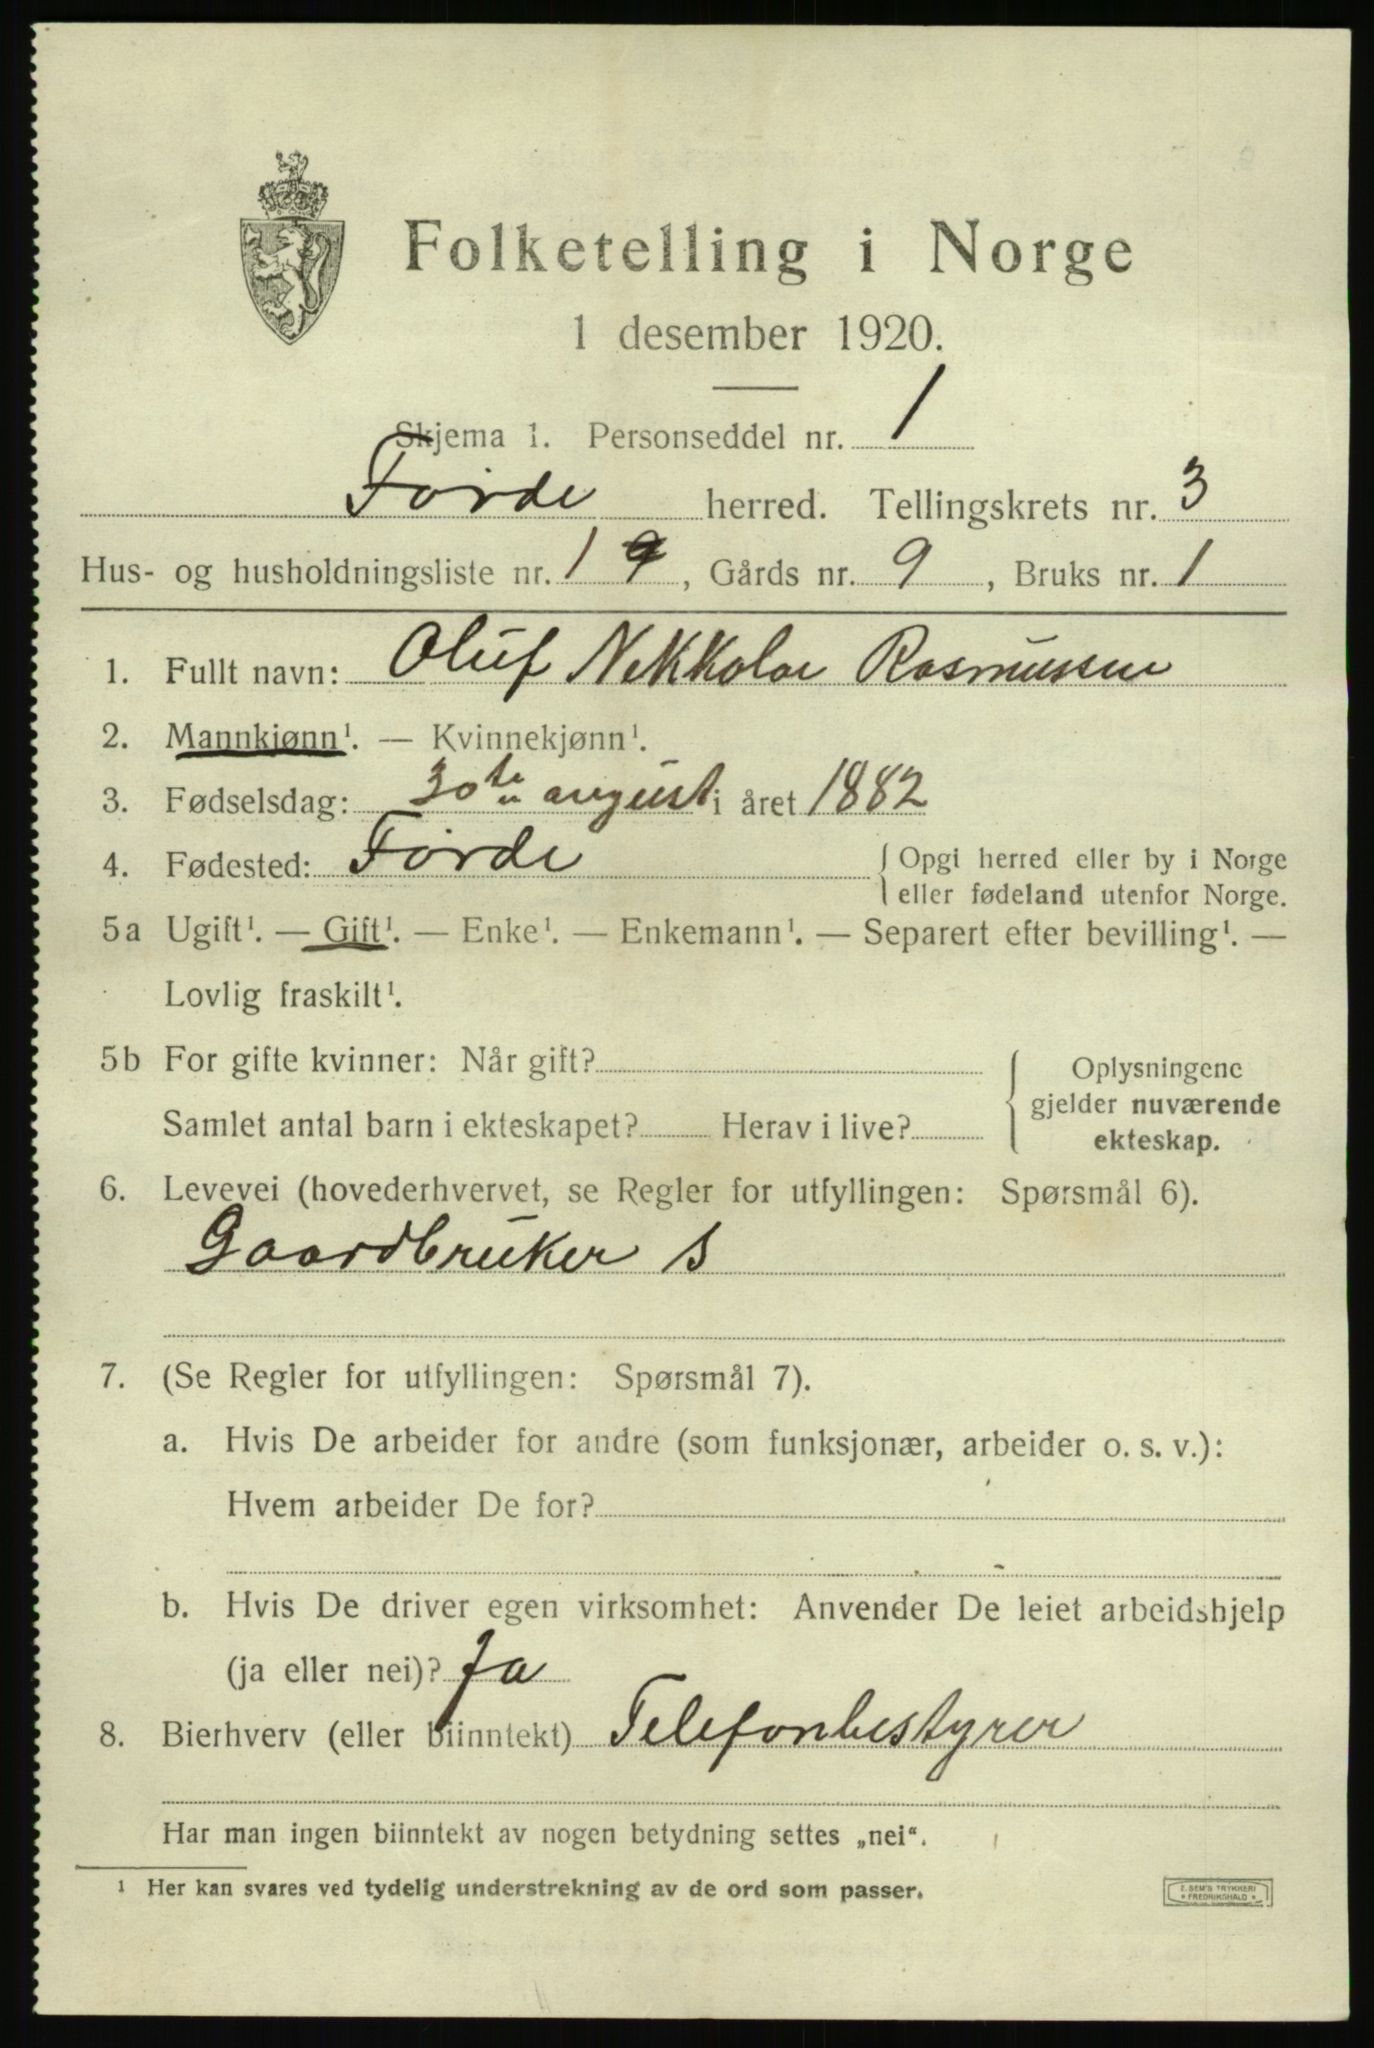 Folketelling i Norge
1 desember 1920.
Skjema 1. Personseddel nr. 1
Førde herred. Tellingskrets nr. 3
Hus- og husholdningsliste nr. 19, Gårds nr. 9, Bruks nr. 1
1. Fullt navn: Oluf Nekkolai Rasmussen
2. Mannkjønn¹. — Kvinnekjønn¹.
3. Fødselsdag: 30te august i året 1882
4. Fødested: Førde { Opgi herred eller by i Norge
eller fødeland utenfor Norge.
5a Ugift¹. — Gift¹. — Enke¹. — Enkemann¹. — Separert efter bevilling¹. —
Lovlig fraskilt¹.
5b For gifte kvinner: Når gift? { Oplysningene
gjelder nuværende
Samlet antal barn i ekteskapet? Herav i live?
ekteskap.
6. Levevei (hovederhvervet, se Regler for utfyllingen: Spørsmål 6).
Gaardbruker s
7. (Se Regler for utfyllingen: Spørsmål 7).
a. Hvis De arbeider for andre (som funksjonær, arbeider o. s. v.):
Hvem arbeider De for?
b. Hvis De driver egen virksomhet: Anvender De leiet arbeidshjelp
(ja eller nei)? Ja
8. Bierhverv (eller biinntekt) Telefonbestyrer
Har man ingen biinntekt av nogen betydning settes „nei“.
¹ Her kan svares ved tydelig understrekning av de ord som passer.
E. SEM'S TRYKKERI
* FREDRIKSHALD *